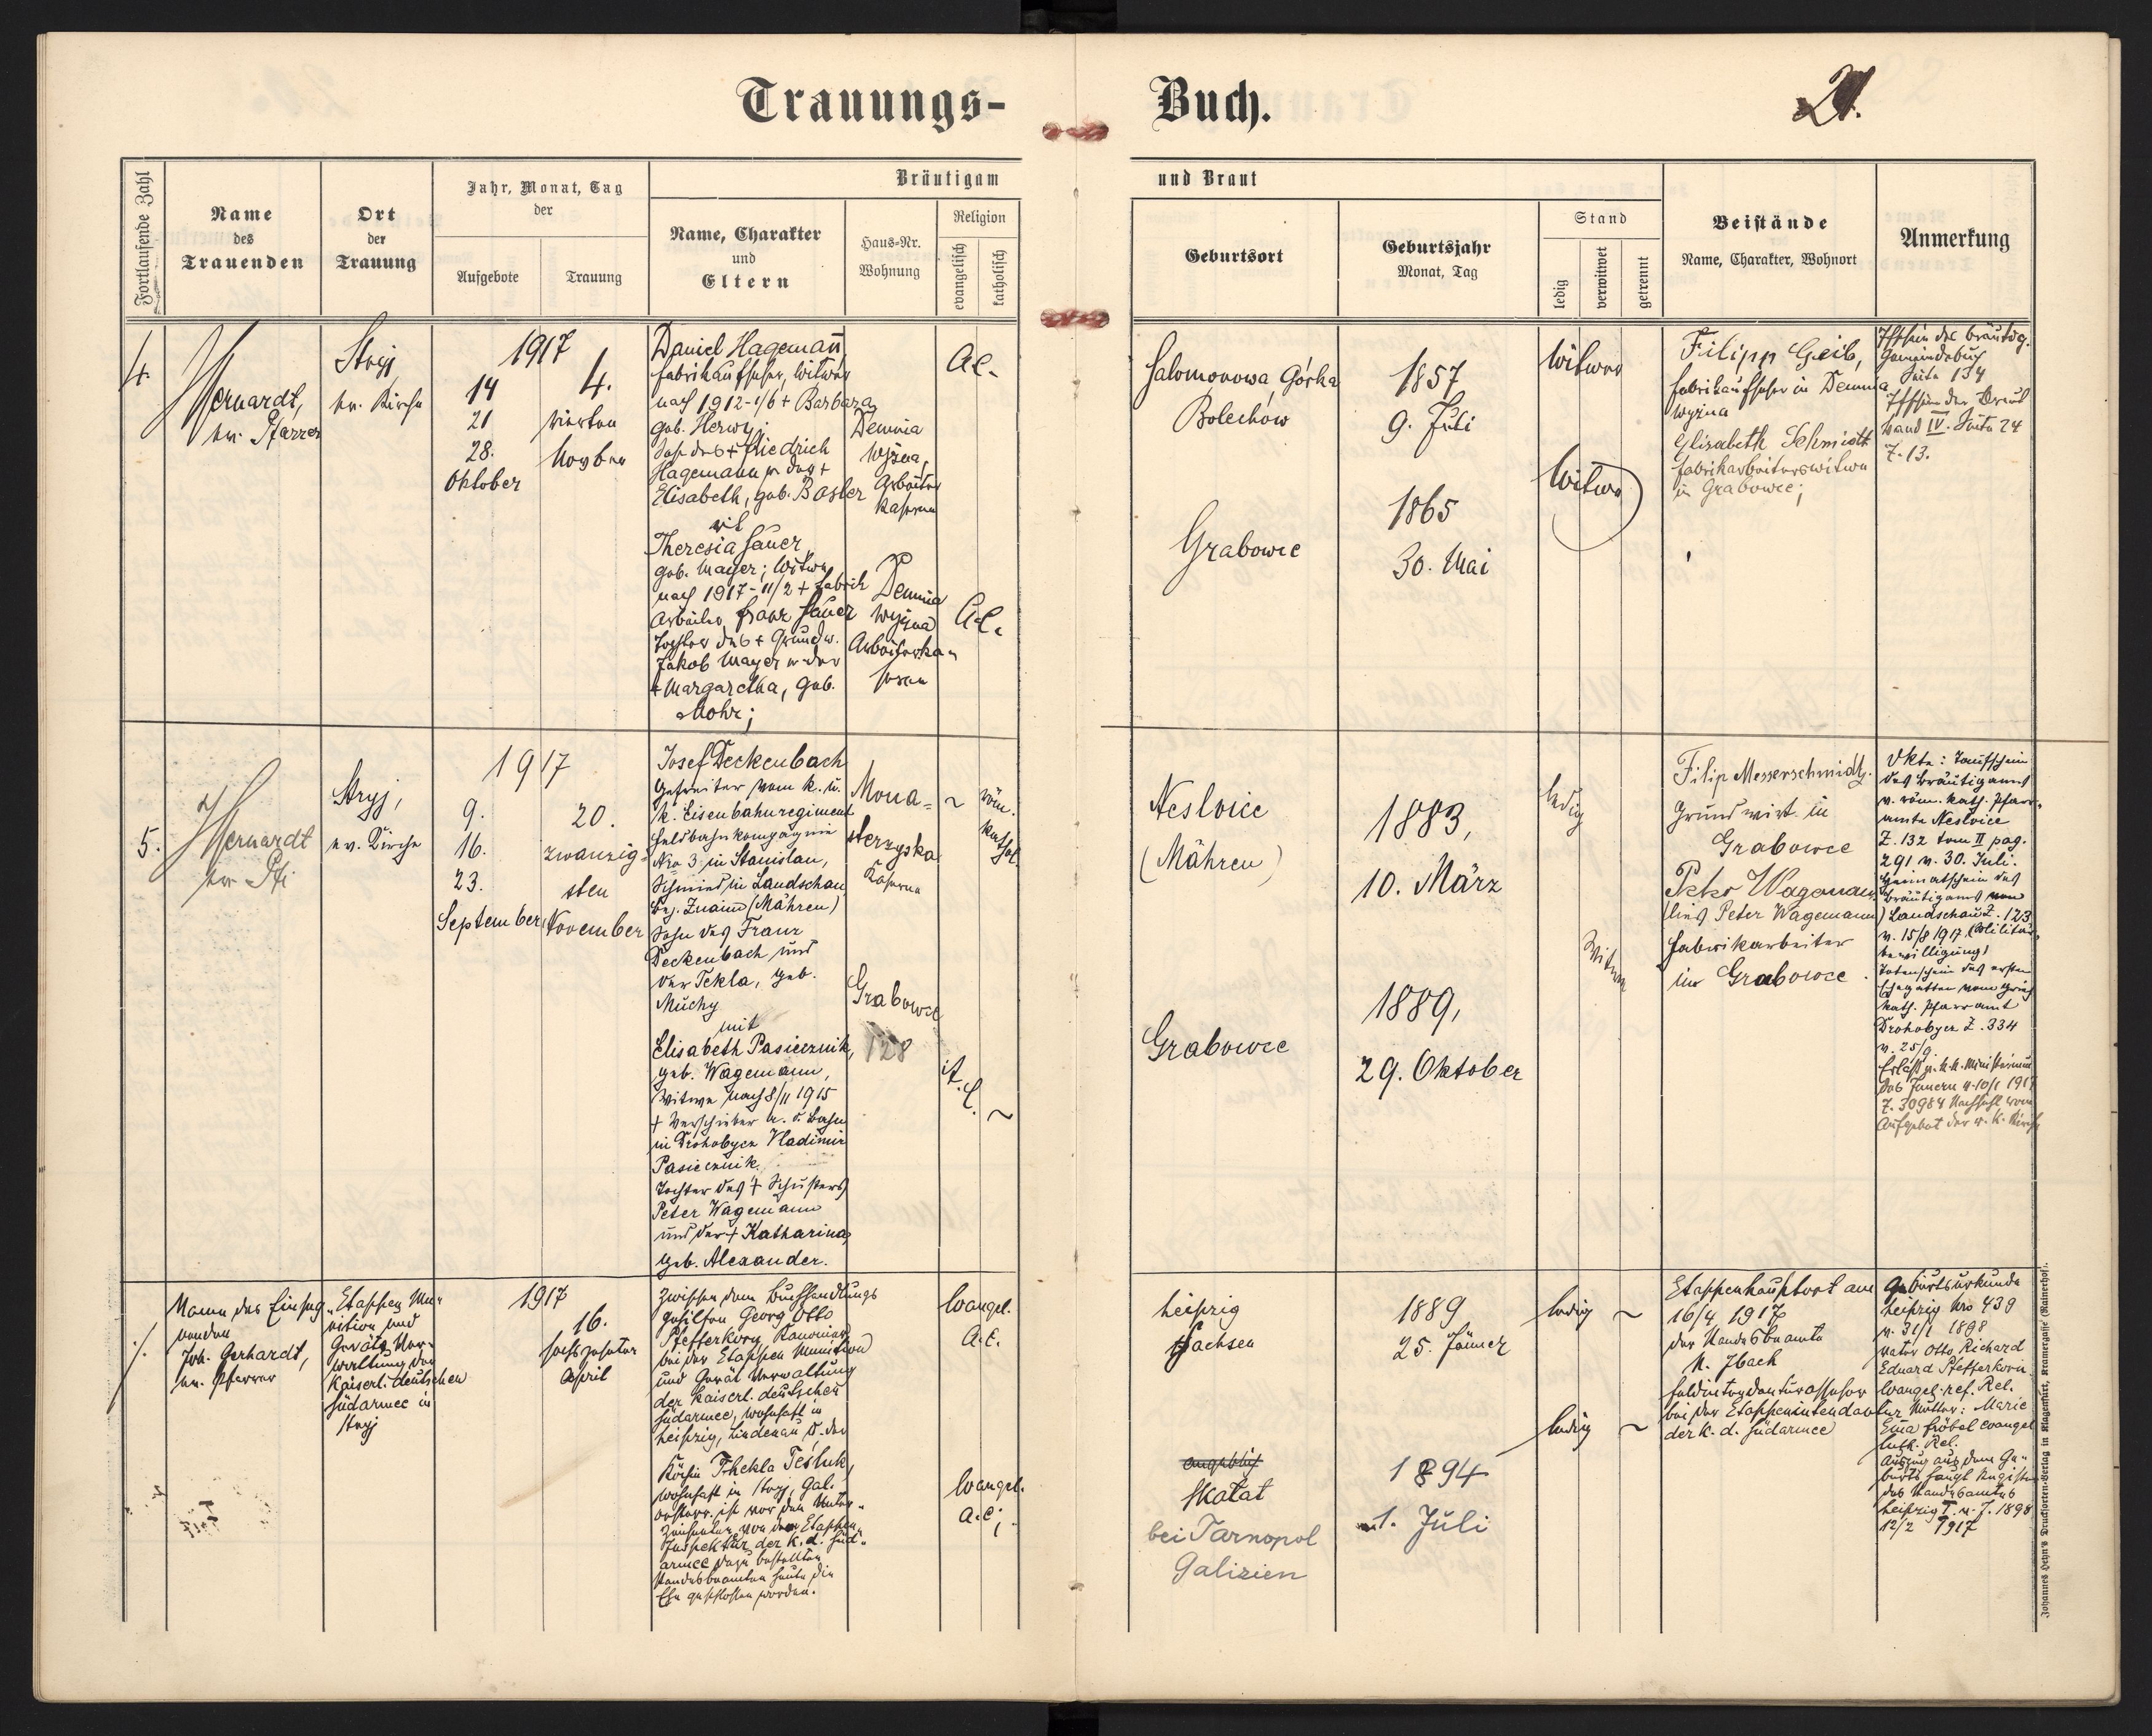 Trauungs-
Buch.
21.
Fortlaufende Zahl
Name
des
Trauenden
Ort
der
Trauung
Jahr, Monat, Tag
der
Aufgebote
Trauung
Bräutigam
Name, Charakter
und
Eltern
Haus-Nr.
Wohnung
Religion
evangelisch
katholisch
und Braut
Geburtsort
Geburtsjahr
Monat, Tag
Stand
ledig
verwitwet
getrennt
Beistände
Name, Charakter, Wohnort
Anmerkung
4.
ev. Pfarrer
Stryj
ev. Kirche
1917
14
21
28.
Oktober
4.
vierten
Novbr
Daniel Hagemann
Fabrikaufseher, Witwer
nach 1912-1/6 + Barbara
geb. Herwy;
Sohn des + Friedrich
Hagemann u. der +
Elisabeth, geb. Basler
mit
Theresia Sauer
geb. Mayer; Witwe
nach 1917-11/2 + Fabrik
Arbeiter Franz Sauer
Tochter des + Grundw.
Jakob Mayer u. der
+ Margaretha, geb.
Mohr;
Demnia
Wyżna,
Arbeiter
Kaserne
Demnia
Wyżna
Arbeiterka-
serne
A.C.
A.C.
Salomonowa Górka
Bolechów
1857
9. Juli
Witwer
Grabowce
1865
30. Mai
Witwe
Filipp Geib,
Fabrikaufseher in Demnia
Wyżna
Elisabeth Schmidt
Fabrikarbeiterswitwe
in Grabowce;
Tfschein des Bräutig.
Gemeindebuch
Seite 134
Tfschein der Braut
Band IV. Seite 24
Z. 13.
5.
Stryj,
ev. Kirche
1917
9.
16.
23.
September
20.
zwanzig-
sten
November
Josef Deckenbach
Gefreiter vom k. u.
k. Eisenbahnregiment
Feldbahnkompagnie
Nro 3 in Stanislau,
Schmied in Landschau
Bez. Znaim (Mähren)
Sohn des Franz
Deckenbach und
der Tekla, geb.
Muchy
mit
Elisabeth Pasiecznik,
geb. Wagemann,
Witwe nach 8/11 1915
+ Verschieber a. d. Bahn
in Drohobycz Vladimir
Pasiecznik.
Tochter des + Schusters
Peter Wagemann
und der + Katharina,
geb. Alexander.
Mona-
sterzyska
Kaserne
Grabowce
128
röm.
kathol.
A. C.
Neslvice
(Mähren)
1883,
10. März
ledig
Grabowce
1889,
29. Oktober
Witwe
Filip Messerschmidt,
Grundwirt in
Grabowce
Peter Wagemann
(lies Peter Wagemann)
Fabrikarbeiter
in Grabowce.
Dkte: Taufschein
des Bräutigams
v. röm. kath. Pfarr-
amte Neslvice
Z. 132 tom II pag.
291 v. 30. Juli.
Heimatschein des
Bräutigams von
Landschau Z. 123
v. 15/8 1917 (Militär-
bewilligung)
Totenschein des ersten
Ehegatten vom griech
kath. Pfarramt
Drohobycz Z. 334
v. 25/9
Erlaß v. k.k. Ministerium
des Innern v. 10/1 1917
Z. 30984 Nachsicht vom
Aufgebot der r. k. Kirche
Joh. Gerhardt,
ev. Pfarrer
Etappen Mu-
nition und
Geräte Ver-
waltung der
Kaiserl. deutschen
Südarmee in
Stryj
1917
16.
sechszehnter
April
Zwischen dem Buchhandlungs
gehilfen Georg Otto
Pfefferkorn, Kanonier
bei der Etappen Munition
und Gerät Verwaltung
der Kaiserl. deutschen
Südarmee, wohnhaft in
Leipzig, Lindenau u. der
Köchin Thekla Tesluk,
wohnhaft in Stryj, Gal.
österr. ist vor dem Unter-
zeichneten von der Etappen
Inspektur der k. d. Süd-
armee dazu bestellten
Standesbeamten heute die
Ehe geschlossen worden.
Evangel.
A.C.
Evangel.
A.C.;
Leipzig
Sachsen
1889
25. Jänner
ledig
angeblich
Skalat
bei Tarnopol
Galizien
1894
1. Juli
ledig
Etappenhauptort am
16/4 1917
der Standesbeamte
N. Ibach
Feldintendanturassessor
bei der Etappenintendantur
der k. d. Südarmee
Geburtsurkunde
Leipzig Nro 439
v. 31/1 1898
Vater Otto Richard
Eduard Pfefferkorn
Evangel.-ref. Rel.
Mutter: Marie
Ema Fröbel evangel
luth. Rel.
Auszug aus dem Ge-
burts Haupt Register
des Standesamtes
Leipzig I. v. J. 1898
12/2 1917
Johannes Heyn's Drucksorten-Verlag in Klagenfurt, Kramergasse (Rainerhof).